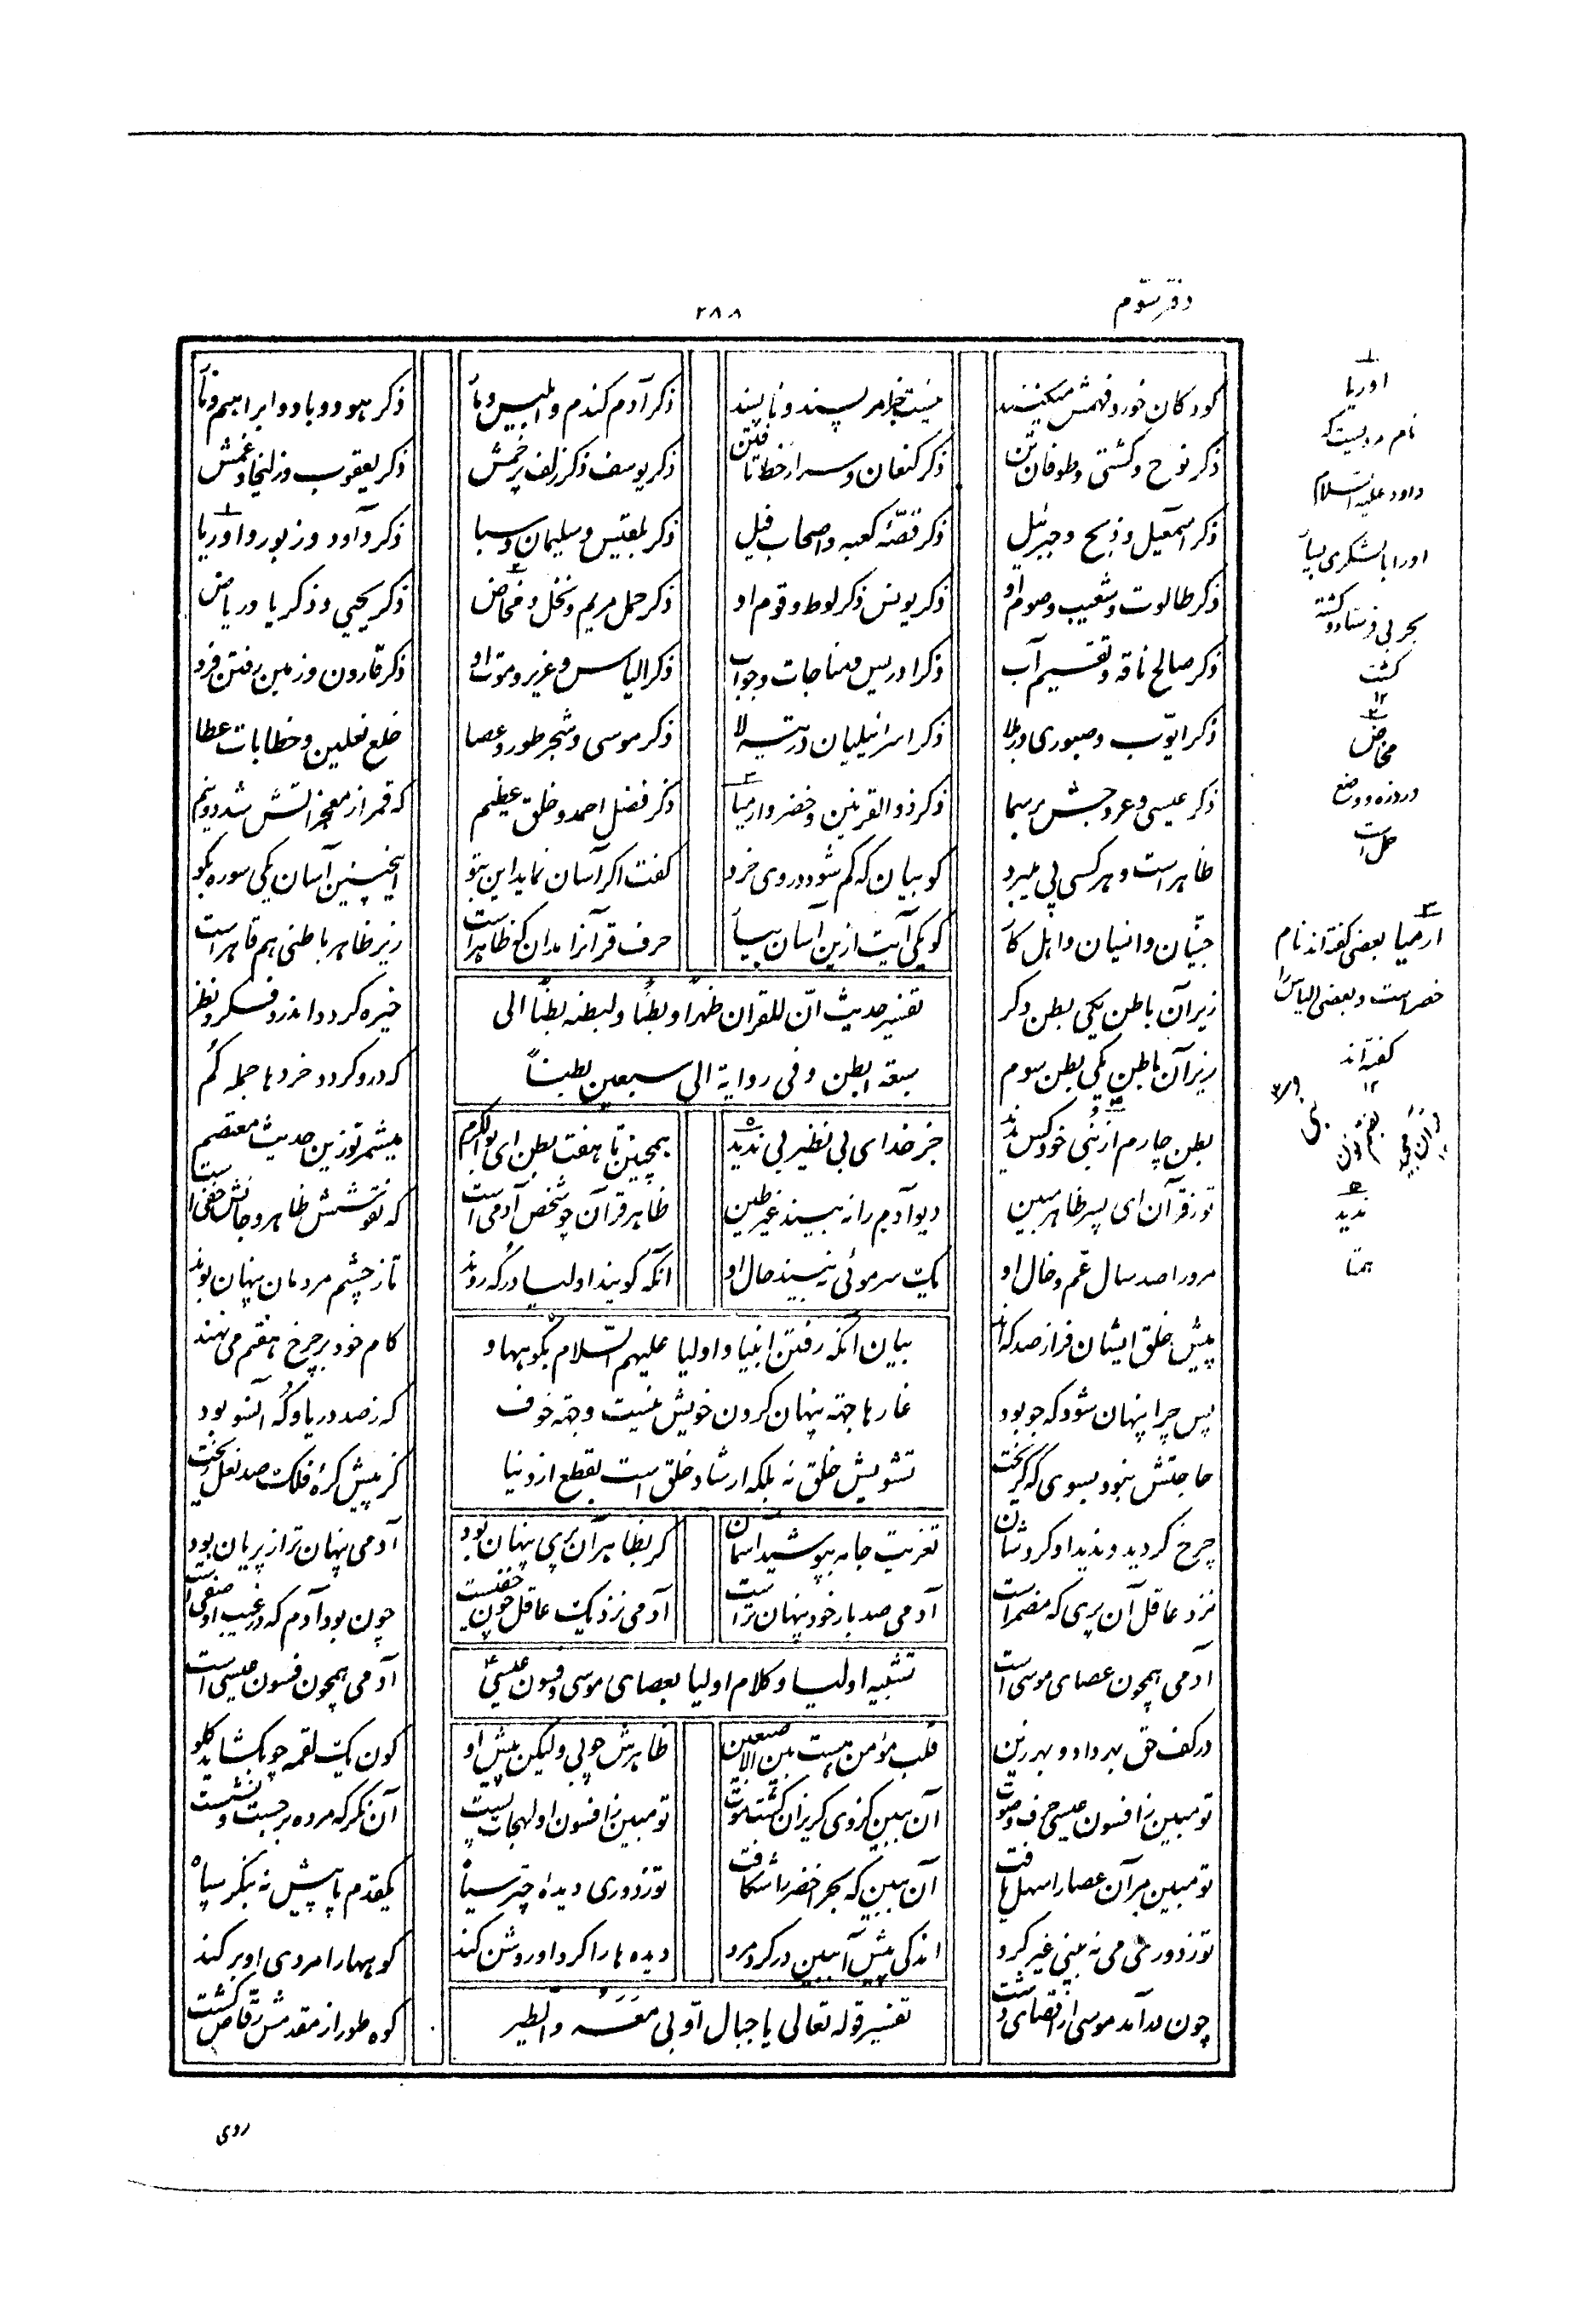 دفتر سوم
۲۸۸
کودکان خورد فهمش میکنند نیست جز امر پسند و ناپسند ذکر آدم گندم و ابلیس و مار ذکر هود و باد و ابراهیم و نار
ذکر نوح و کشتی و طوفان تن ذکر کنعان و سر از خط تافتن ذکر یوسف ذکر زلف پر خمش ذکر یعقوب و زلیخا و غمش
ذکر اسمعیل و ذبح و جبرئیل ذکر قصّهٔ کعبه و اصحاب فیل ذکر بلقیس و سلیمان و سبا ذکر داود و زبور و اوریا
ذکر طالوت و شعیب و صوم او ذکر یونس ذکر لوط و قوم او ذکر حمل مریم و نخل و مخاض ذکر یحیی و زکریا و ریاض
ذکر صالح ناقه و تقسیم آب ذکر ادریس و مناجات و جواب ذکر الیاس و عزیر و موت او ذکر قارون و زمین رفتن فرو
ذکر ایّوب و صبوری در بلا ذکر اسرائیلیان در تیه لا ذکر موسی و شجر طور و عصا خلع نعلین و خطابات عطا
ذکر عیسی و عروجش بر سما ذکر ذو القرنین و خضر و ارمیا ذکر فضل احمد و خلق عظیم که قمر از معجزاتش شد دو نیم
ظاهر است و هر کسی پی میبرد کو بیان که گم شود در وی خرد گفت اگر آسان نماید این بتو اینچنین آسان یکی سوره بگو
جنّیان و انسیان و اهل کار گو یکی آیت ازین آسان بیار حرف قرآنرا مدان که ظاهر است زیر ظاهر باطنی هم قاهر است
زیر آن باطن یکی بطن دگر خیره گردد اندرو فکر و نظر
تفسیر حدیث انّ للقران ظهراً و بطناً و لبطنه بطناً الی
زیر آن باطن یکی بطن سوم که درو گردد خردها جمله گم
سبعة ابطن و فی روایة الی سبعین بطناً
بطن چارم از نبی خود کس ندید جز خدای بی نظیر بی ندید همچنین تا هفت بطن ای بوالکرم میشمر تو زین حدیث معتصم
تو ز قرآن ای پسر ظاهر مبین دیو آدم را نه بیند غیر طین ظاهر قرآن چو شخص آدمی است که نقوشش ظاهر و جانش خفی است
مرد را صد سال عم و خال او یک سر موئی نه بیند حال او آنکه گویند اولیا در که روند تا ز چشم مردمان پنهان بوند
پیش خلق ایشان فراز صد که اند گام خود بر چرخ هفتم می نهند
بیان آنکه رفتن انبیا و اولیا علیهم السّلام بکوهها و
پس چرا پنهان شود که جو بود که ز صد دریا و که آنسو بود
غارها جهة پنهان کردن خویش نیست و جهة خوف
حاجتش نبود بسوی که گریخت کز پیش کرهٔ فلک صد نعل ریخت
تشویش خلق نه بلکه ارشاد خلق است بقطع از دنیا
چرخ گردید و ندید او گرد شان تعزیت جامه بپوشید آسمان گر بظاهر آن پری پنهان بود آدمی پنهان تر از پریان بود
نزد عاقل آن پری که مضمر است آدمی صد بار خود پنهان تر است آدمی نزدیک عاقل چون خفیست چون بود آدم که در غیب او صفی است
آدمی همچون عصای موسی است آدمی همچون فسون عیسی است
تشبیه اولیا و کلام اولیا بعصای موسی و فسون عیسی
در کف حق بهر داد و بهر زین قلب مؤمن هست بین الاصبعین ظاهرش چوبی ولیکن پیش او کون یک لقمه چو بگشاید گلو
تو مبین ز افسون عیسی حرف و صوت آن ببین کز وی گریزان گشت موت تو مبین ز افسون او لهجات پست آن نگر که مرده برجست و نشست
تو مبین مر آن عصا را سهل یافت آن ببین که بحر اخضر را شکافت تو ز دوری دیدهٔ چتر سیاه یکقدم پا پیش نه بنگر سپاه
تو ز دوری می نه بینی غیر گرد اندکی پیش آ ببین در گرد مرد دیده ها را گرد او روشن کند کوهها را مردی او بر کند
چون بر آمد موسی از اقصای دشت کوه طور از مقدمش رقّاص گشت
تفسیر قوله تعالی یا جبال اوّبی معه و الطیر
روی
۱
اوریا
نام مردیست که
داود علیه السلام
اورا با لشکری بسیار
بحربی فرستاد و کشته
گشت
۱۲
۲
مخاض
درد زه و وضع
حمل است
۳
ارمیا بعضی گفته اند نام
خضر است و بعضی الیاس را
گفته اند
۱۲
نبی
بضم نون
قرآن مجید
۵
ندید
همتا